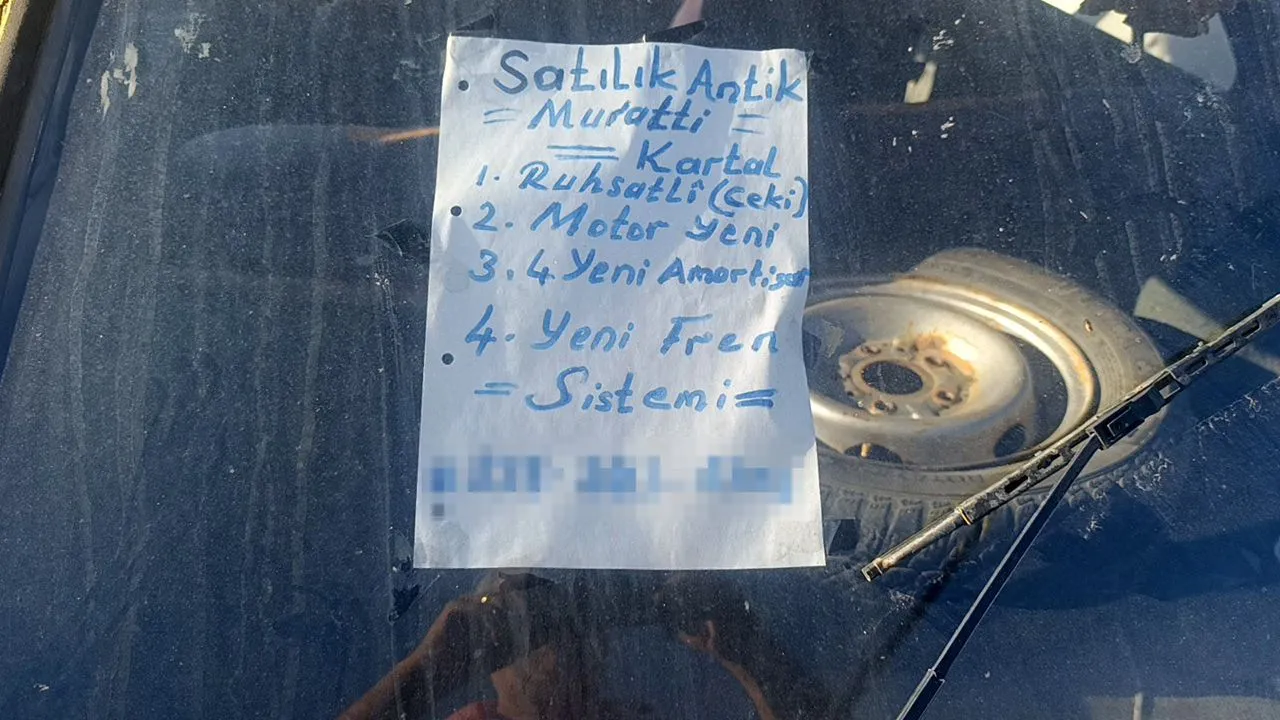 Satılık Antik
= Muratti =
= Kartal
1. Ruhsatlî (Çeki)
2. Motor yeni
3. 4 Yeni Amortisör
4. Yeni Fren
= Sistemi =